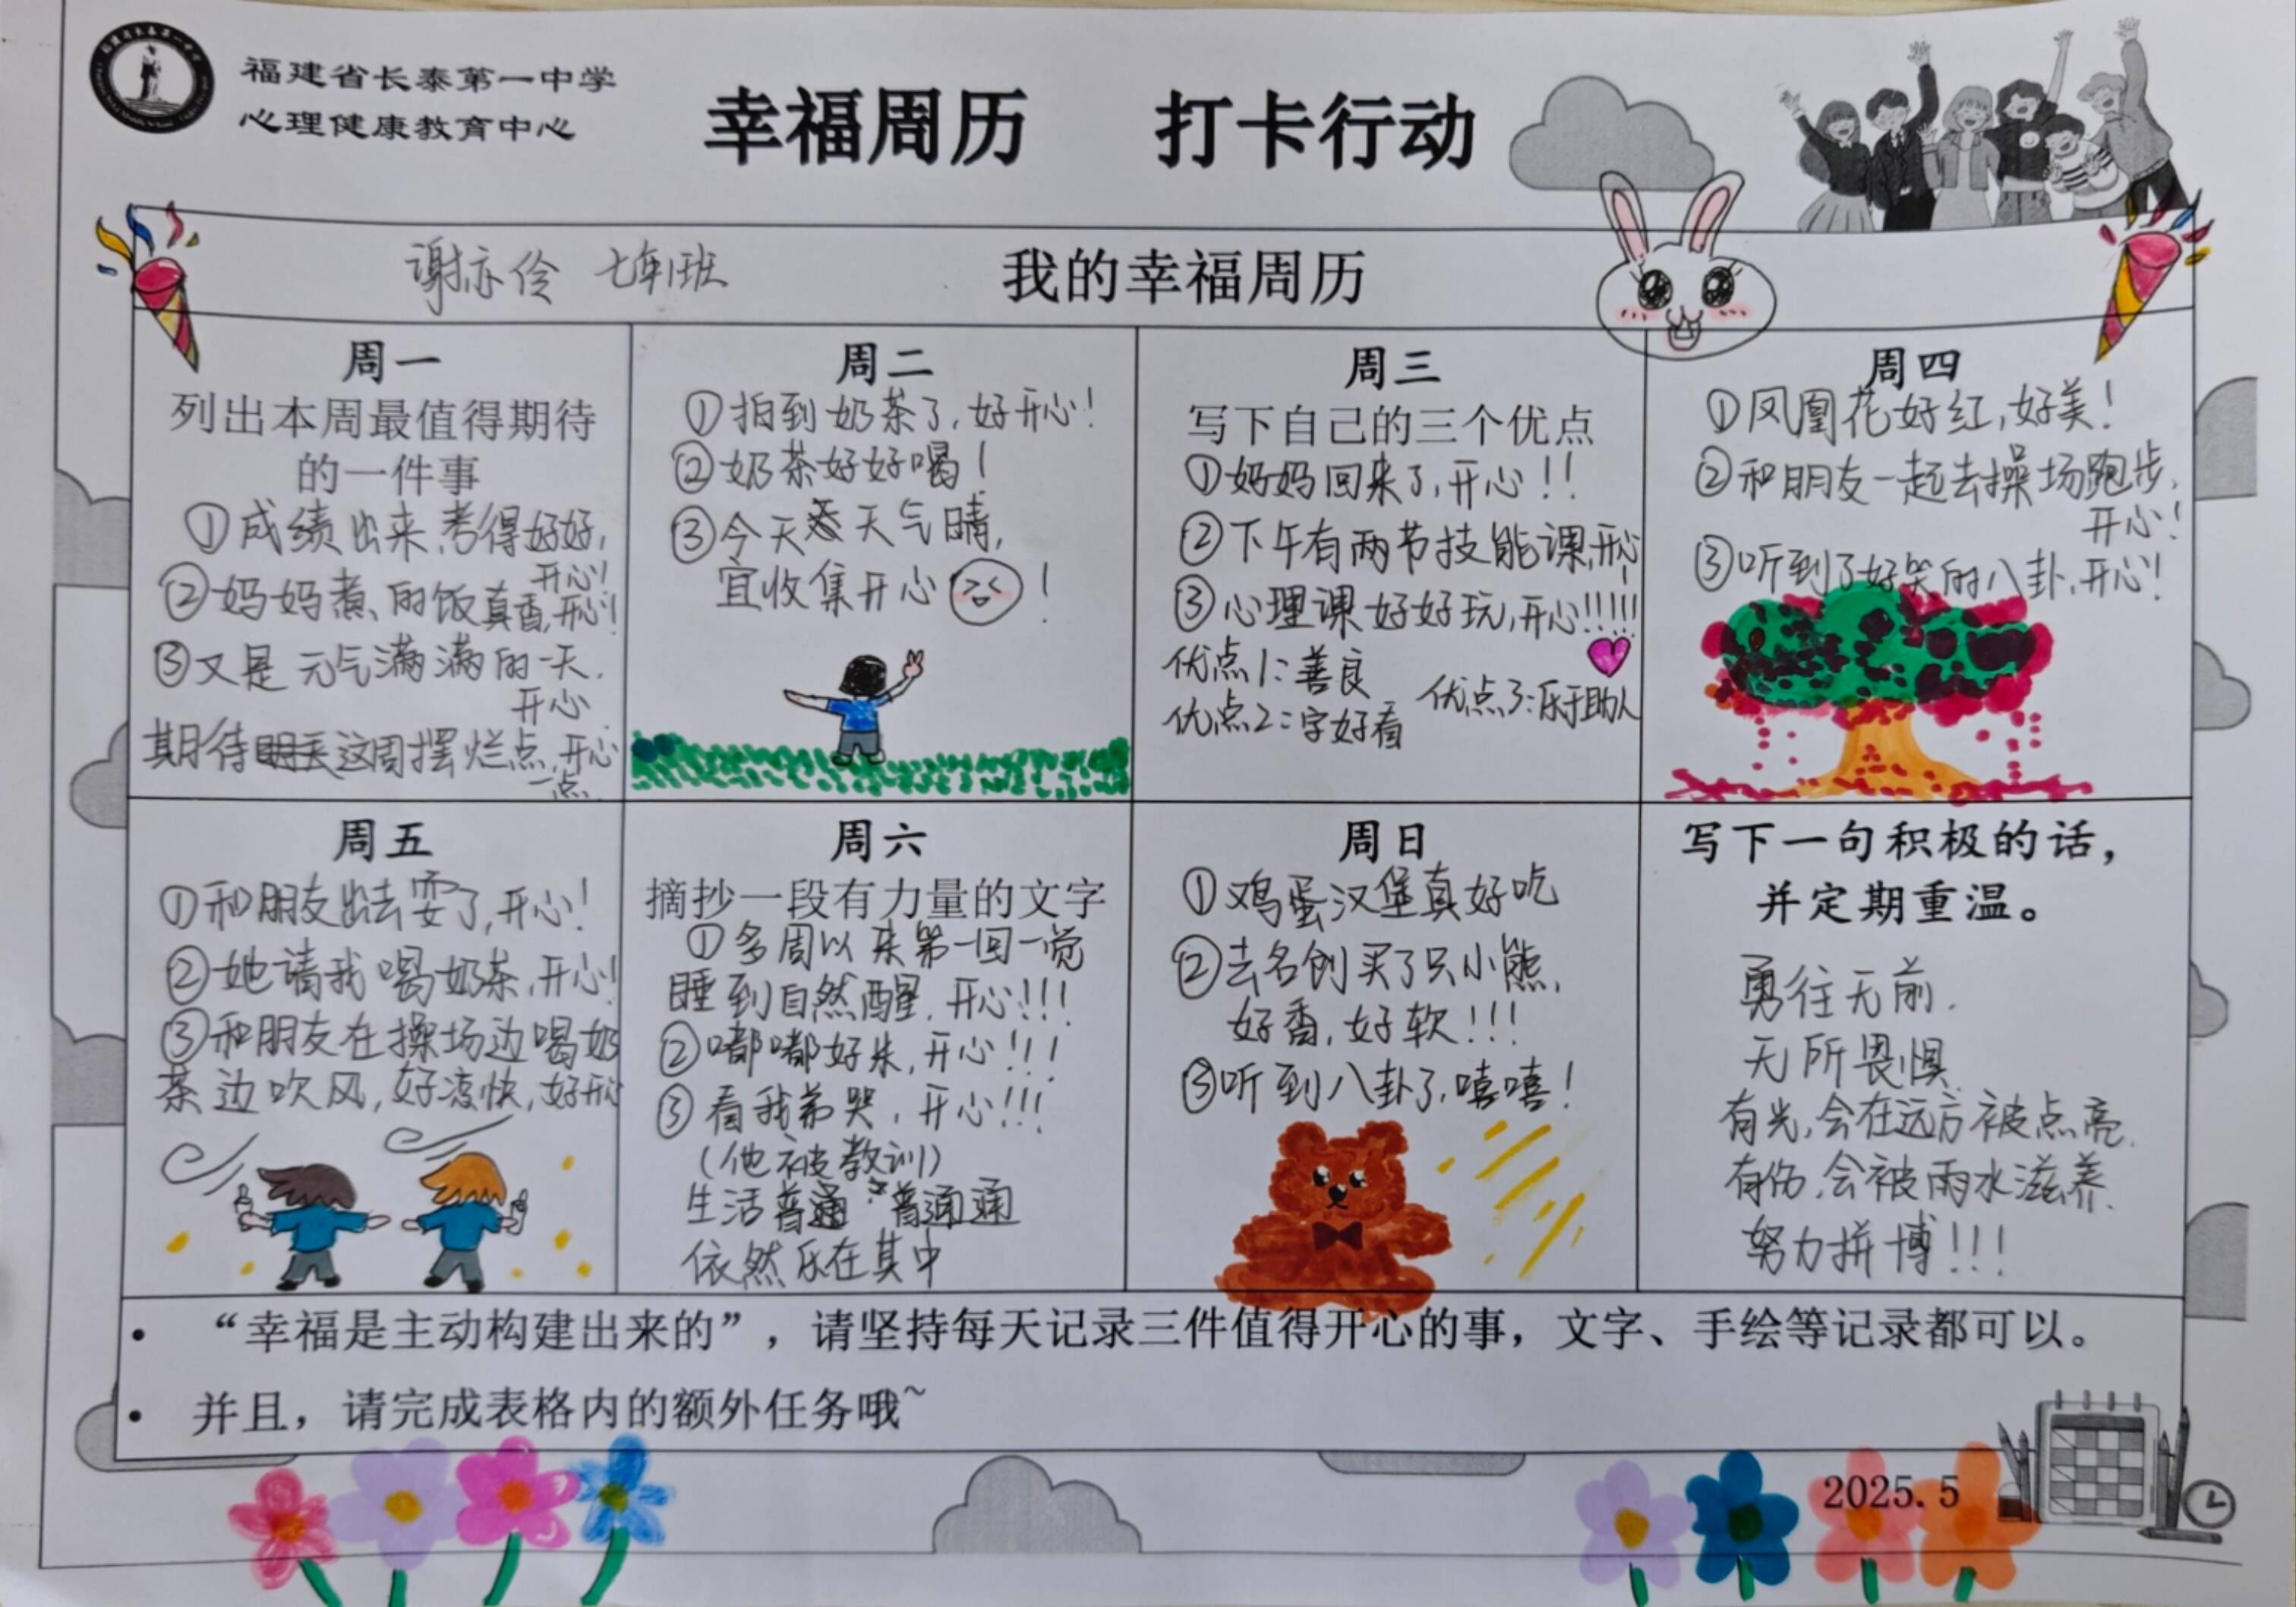 福建省长泰第一中学
心理健康教育中心
幸福周历 打卡行动
谢亦伶 七年1班
我的幸福周历
周一
列出本周最值得期待
的一件事
①成绩出来,考得好好,
开心!
②妈妈煮的饭真香,开心!
③又是元气满满的一天.
开心
期待这周摆烂点,开心
一点.
周二
①拍到奶茶了,好开心!
②奶茶好好喝!
③今天天气晴,
宜收集开心!
周三
写下自己的三个优点
①妈妈回来了,开心!!
②下午有两节技能课,开心!
③心理课好好玩,开心!!!!!
优点1:善良
优点2:字好看
优点3:乐于助人
周四
①凤凰花好红,好美!
②和朋友一起去操场跑步,
开心!
③听到了好笑的八卦,开心!
周五
①和朋友出去耍了,开心!
②她请我喝奶茶,开心!
③和朋友在操场边喝奶
茶边吹风,好凉快,好开心
周六
摘抄一段有力量的文字
①多周以来第一回一觉
睡到自然醒,开心!!!
②嘟嘟好朱,开心!!!
③看我弟哭,开心!!!
(他被教训)
生活普通普通通
依然乐在其中
周日
①鸡蛋汉堡真好吃
②去名创买了只小熊,
好香,好软!!!
③听到八卦了,嘻嘻!
写下一句积极的话,
并定期重温。
勇往无前.
无所畏惧
有光,会在远方被点亮.
有伤,会被雨水滋养.
努力拼博!!!
• “幸福是主动构建出来的”，请坚持每天记录三件值得开心的事，文字、手绘等记录都可以。
• 并且，请完成表格内的额外任务哦~
2025.5